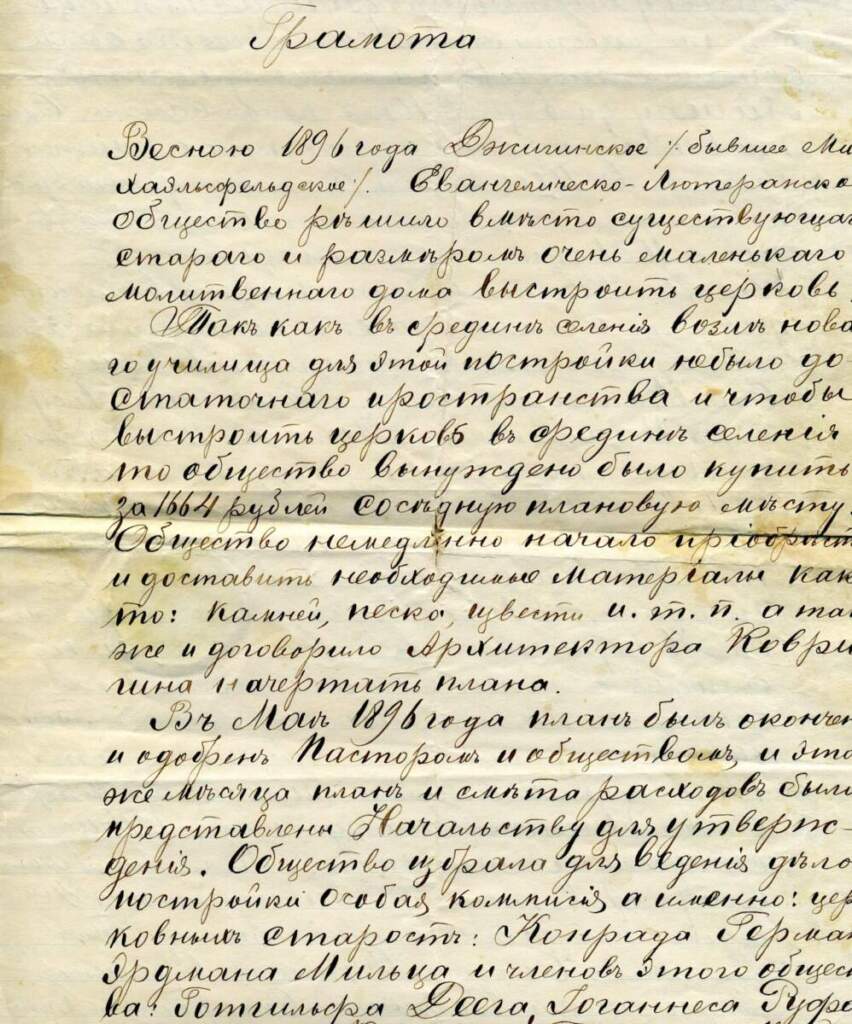 Грамота
Весною 1896 года Джигинское /. бывшее Ми
хаэльсфельдское /. Евангелическо-Лютеранско
общество рѣшило вмѣсто существующаг
стараго и размѣромъ очень маленькаго
молитвеннаго дома выстроить церковь,
Такъ какъ въ срединѣ селенія возлѣ нова
го училища для этой постройки небыло до
статочнаго пространства и чтобы
выстроить церковь въ срединѣ селенія
то общество вынуждено было купить
за 1664 рублей сосѣдную плановую мѣсту.
Общество немедленно начало пріобрѣст
и доставить необходимые матеріалы как
то: камней, песка, извести и. т. п. а так
же и договорило Архитектора Коври
гина начертать плана.
Въ Маѣ 1896 года планъ былъ окончен
и одобренъ Пасторомъ и обществомъ, и это
же мѣсяца планъ и смѣта расходовъ были
представлены Начальству для утверж-
денія. Общество избрала для веденія дѣло
постройки особая коммисія а именно: цер
ковныхъ старостъ: Конрада Герман
Эрдмана Мильца и членовъ этого общес
ва: Готгильфа Деега, Іоганнеса Руфа